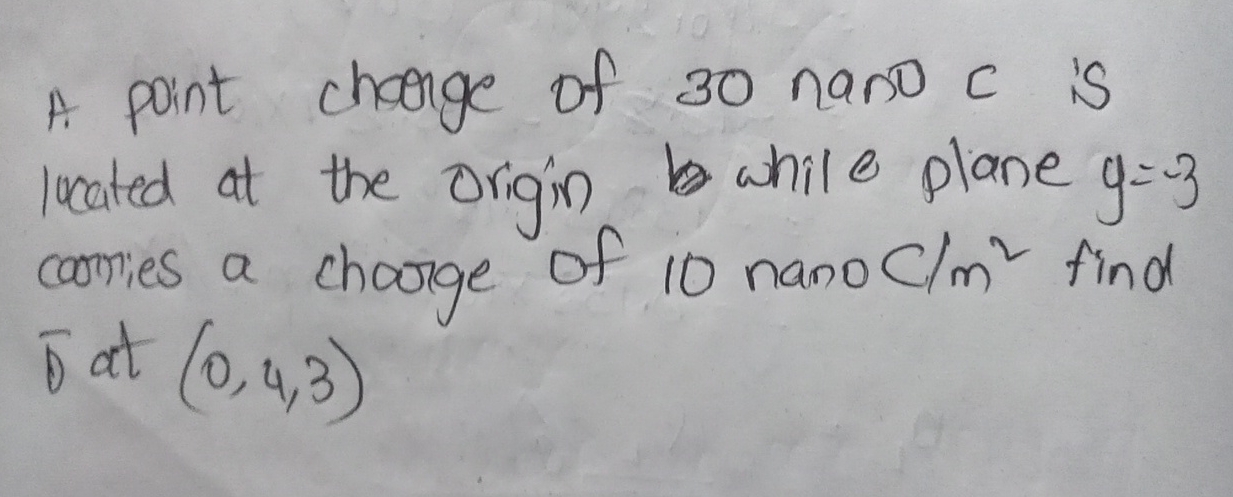 A point charge of 30 nano C is
located at the origin while plane y=-3
carries a charge of 10 nano C/m² find
D̅ at (0,4,3)